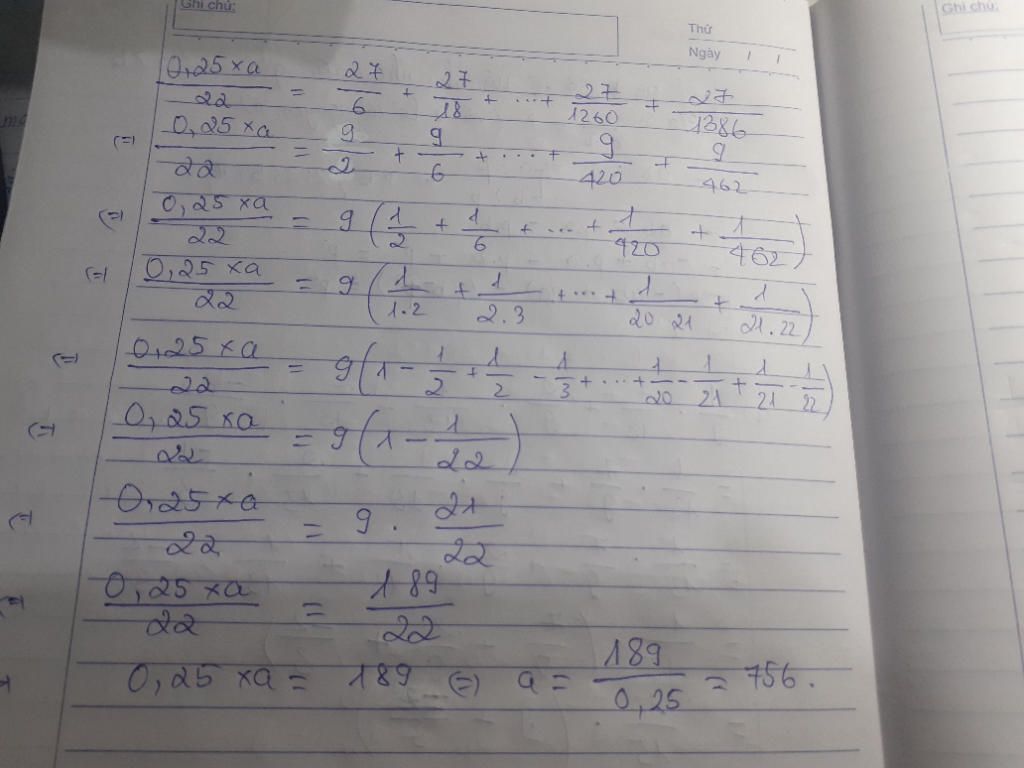 Ghi chú:
Ghi chú:
Thứ
Ngày / /
0,25 × a / 22 = 27/6 + 27/18 + ... + 27/1260 + 27/1386
(=) 0,25 × a / 22 = 9/2 + 9/6 + ... + 9/420 + 9/462
(=) 0,25 × a / 22 = 9 (1/2 + 1/6 + ... + 1/420 + 1/462)
(=) 0,25 × a / 22 = 9 (1/1.2 + 1/2.3 + ... + 1/20 21 + 1/21.22)
(=) 0,25 × a / 22 = 9 (1 - 1/2 + 1/2 - 1/3 + ... + 1/20 - 1/21 + 1/21 - 1/22)
(=) 0,25 × a / 22 = 9 (1 - 1/22)
(=) 0,25 × a / 22 = 9 . 21/22
(=) 0,25 × a / 22 = 189/22
0,25 × a = 189 (=) a = 189/0,25 = 756.